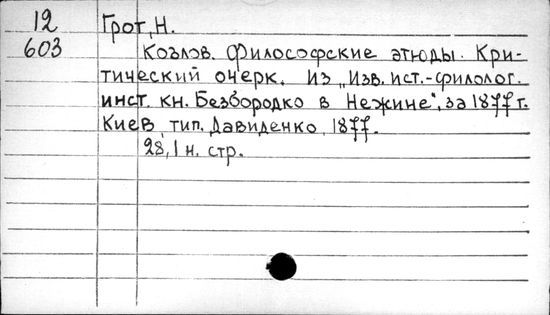 12
603
Грот, Н.
Козлов. Философские этюды. Кри-
тический очерк. Из „Изв. ист.-филолог.
инст. кн. Безбородко в Нежине", за 1877 г.
Киев, тип. Давиденко, 1877.
28, 1 н. стр.